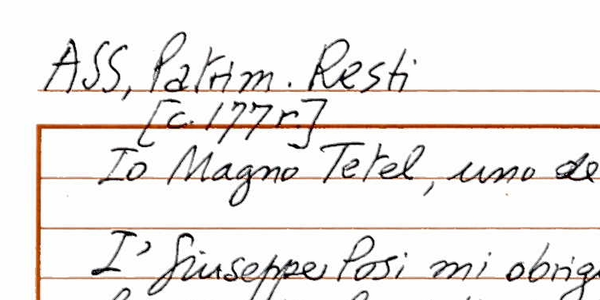 ASS, Patrim. Resti
[c. 177r.]
Io Magno Tetel, uno de
I' Giuseppe Posi mi obrig